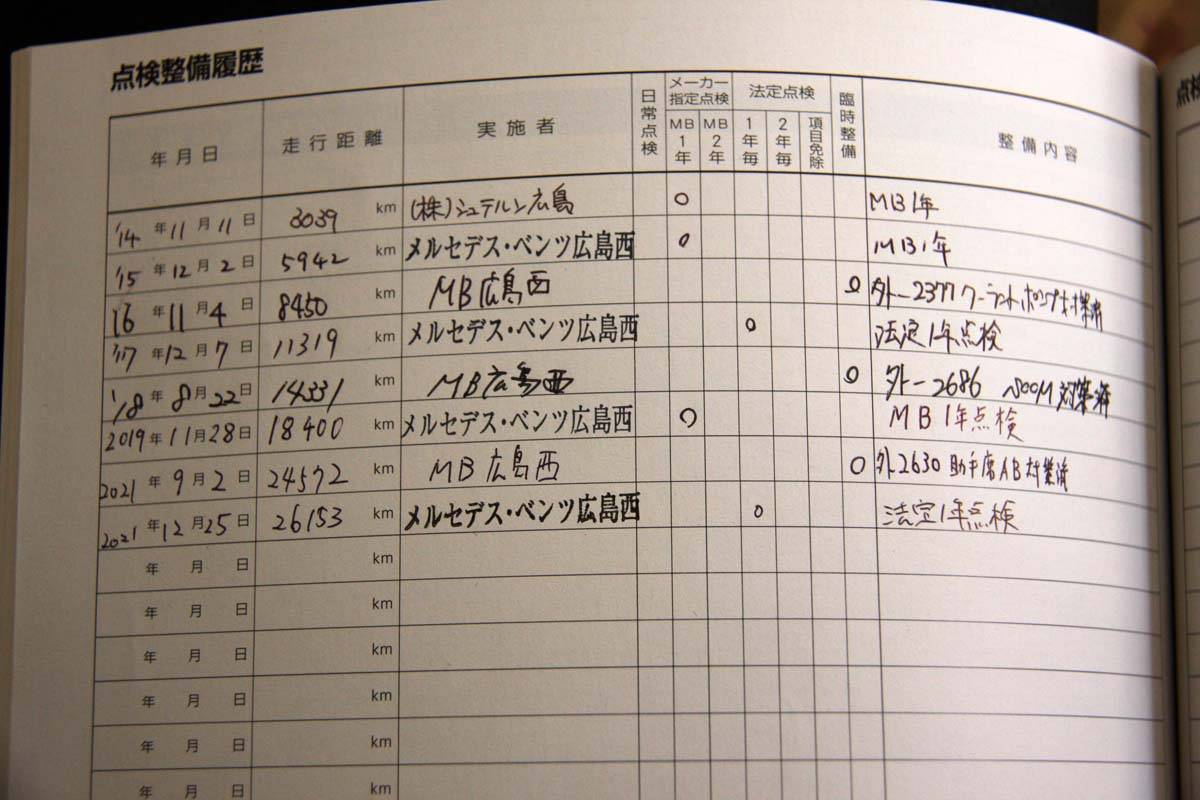 点検整備履歴
年月日 走行距離 実施者 日常点検 メーカー指定点検 MB1年 MB2年 法定点検 1年毎 2年毎 項目免除 臨時整備 整備内容
'14年11月11日 3039 km (株)シュテルン広島 ○ MB1年
'15年12月2日 5942 km メルセデス・ベンツ広島西 ○ MB1年
'16年11月4日 8450 km MB広島西 ○ 外-2377 クーラントポンプ対策済
'17年12月7日 11319 km メルセデス・ベンツ広島西 ○ 法定1年点検
'18年8月22日 14331 km MB広島西 ○ 外-2686 対策済
2019年11月28日 18400 km メルセデス・ベンツ広島西 ○ MB1年点検
2021年9月2日 24572 km MB広島西 ○ 外2630 助手席AB対策済
2021年12月25日 26153 km メルセデス・ベンツ広島西 ○ 法定1年点検
年 月 日 km
年 月 日 km
年 月 日 km
年 月 日 km
年 月 日 km
年 月 日 km
点検